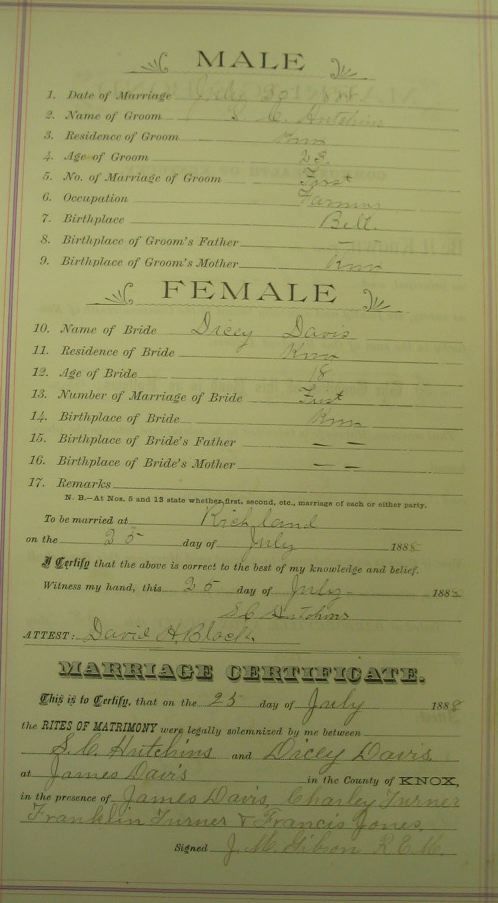 MALE
1. Date of Marriage July 25
2. Name of Groom S. C. Hutchins
3. Residence of Groom Knox
4. Age of Groom 23
5. No. of Marriage of Groom First
6. Occupation Farmer
7. Birthplace Bell.
8. Birthplace of Groom's Father —
9. Birthplace of Groom's Mother Knox
FEMALE
10. Name of Bride Dicey Davis
11. Residence of Bride Knox
12. Age of Bride 18
13. Number of Marriage of Bride First
14. Birthplace of Bride Knox
15. Birthplace of Bride's Father — —
16. Birthplace of Bride's Mother — —
17. Remarks
N. B.—At Nos. 5 and 13 state whether first, second, etc., marriage of each or either party.
To be married at Richland
on the 25 day of July 1888
I Certify that the above is correct to the best of my knowledge and belief.
Witness my hand, this 25 day of July 188
S C Hutchins
ATTEST: David H. Black
MARRIAGE CERTIFICATE.
This is to Certify, that on the 25 day of July 1888
the RITES OF MATRIMONY were legally solemnized by me between
S. C. Hutchins and Dicey Davis
at James Davis in the County of KNOX,
in the presence of James Davis, Charley Turner
Franklin Turner & Francis Jones.
Signed J. M. Gibson